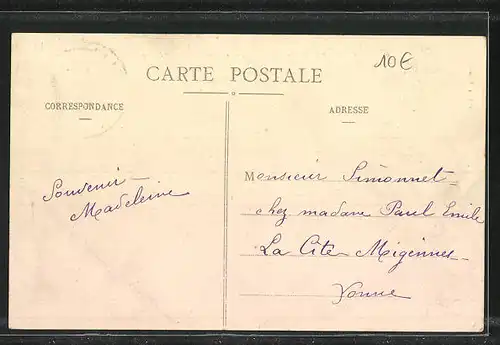 10€
CARTE POSTALE
CORRESPONDANCE
ADRESSE
Souvenir
Madeleine
Monsieur Simonnet
chez madame Paul Emile
La Cité Migennes
Yonne